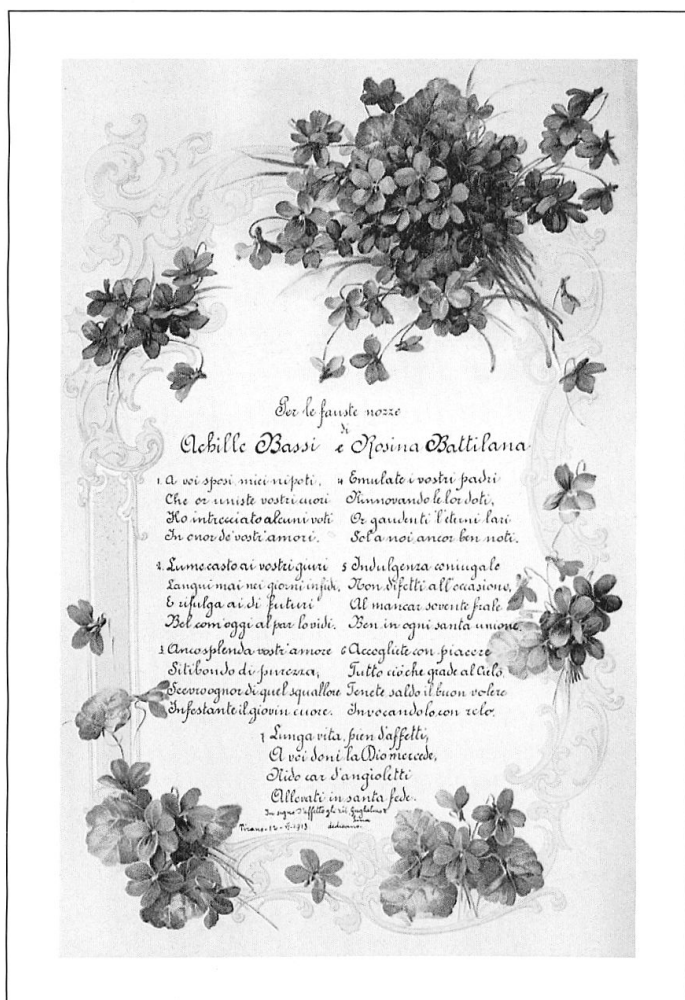 Per le fauste nozze
di
Achille Bassi e Rosina Battilana
1. A voi sposi, miei nipoti,
Che or uniste vostri cuori
Ho intrecciato alcuni voti
In onor de' vostri amori.
2. Lume casto ai vostri giuri
Langui mai nei giorni infidi,
E rifulga ai dì futuri
Bel com'oggi al par lo vidi.
3. Ancosplenda vostr'amore
Sitibondo di purezza,
Scevro ognor di quel squallore
Infestante il giovin cuore.
4 Emulate i vostri padri
Rinnovando le lor doti,
Or gaudenti l'eterni lari
Sol a noi ancor ben noti.
5 Indulgenza coniugale
Non difetti all'occasione,
Al mancar sovente frale
Ben in ogni santa unione.
6 Accogliete con piacere
Tutto ciò che grade al Cielo,
Tenete saldo il buon volere
Invocandolo con zelo.
7 Lunga vita, pien d'affetti,
A voi doni la Dio mercede,
Nido car d'angioletti
Allevati in santa fede.
In segno d'affetto gli zii Guglielmo e
Tirano 12 1913 dedicano.